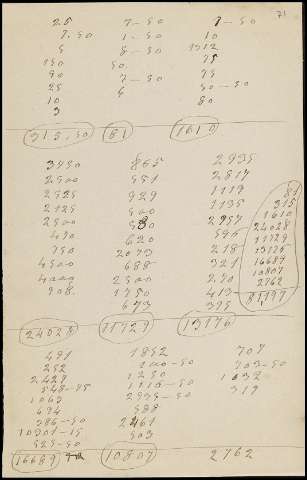 71
25 7-50 7-50
7.50 1-50 10
5 8-50 1312
150 50. 75
90 7-50 75
25 6 50-50
10 80
3
315,50 81 1610
3450 865 2935
2500 551 2817
2525 929 1119
2125 500 1135
2500 2957
450 620 595
750 2073 218
4500 688 321
4000 2500 250
908. 1750 413
673 375
81
315
1610
24028
11729
13176
16689
10807
2762
81197
24028 11729 13176
491 1852 707
252 100-50 703-50
2429 1250 1032
548-75 1116-50 319
1063 2935-50
694 588
386-50 2461
10301-15 503
525-50
16689 10807 2762